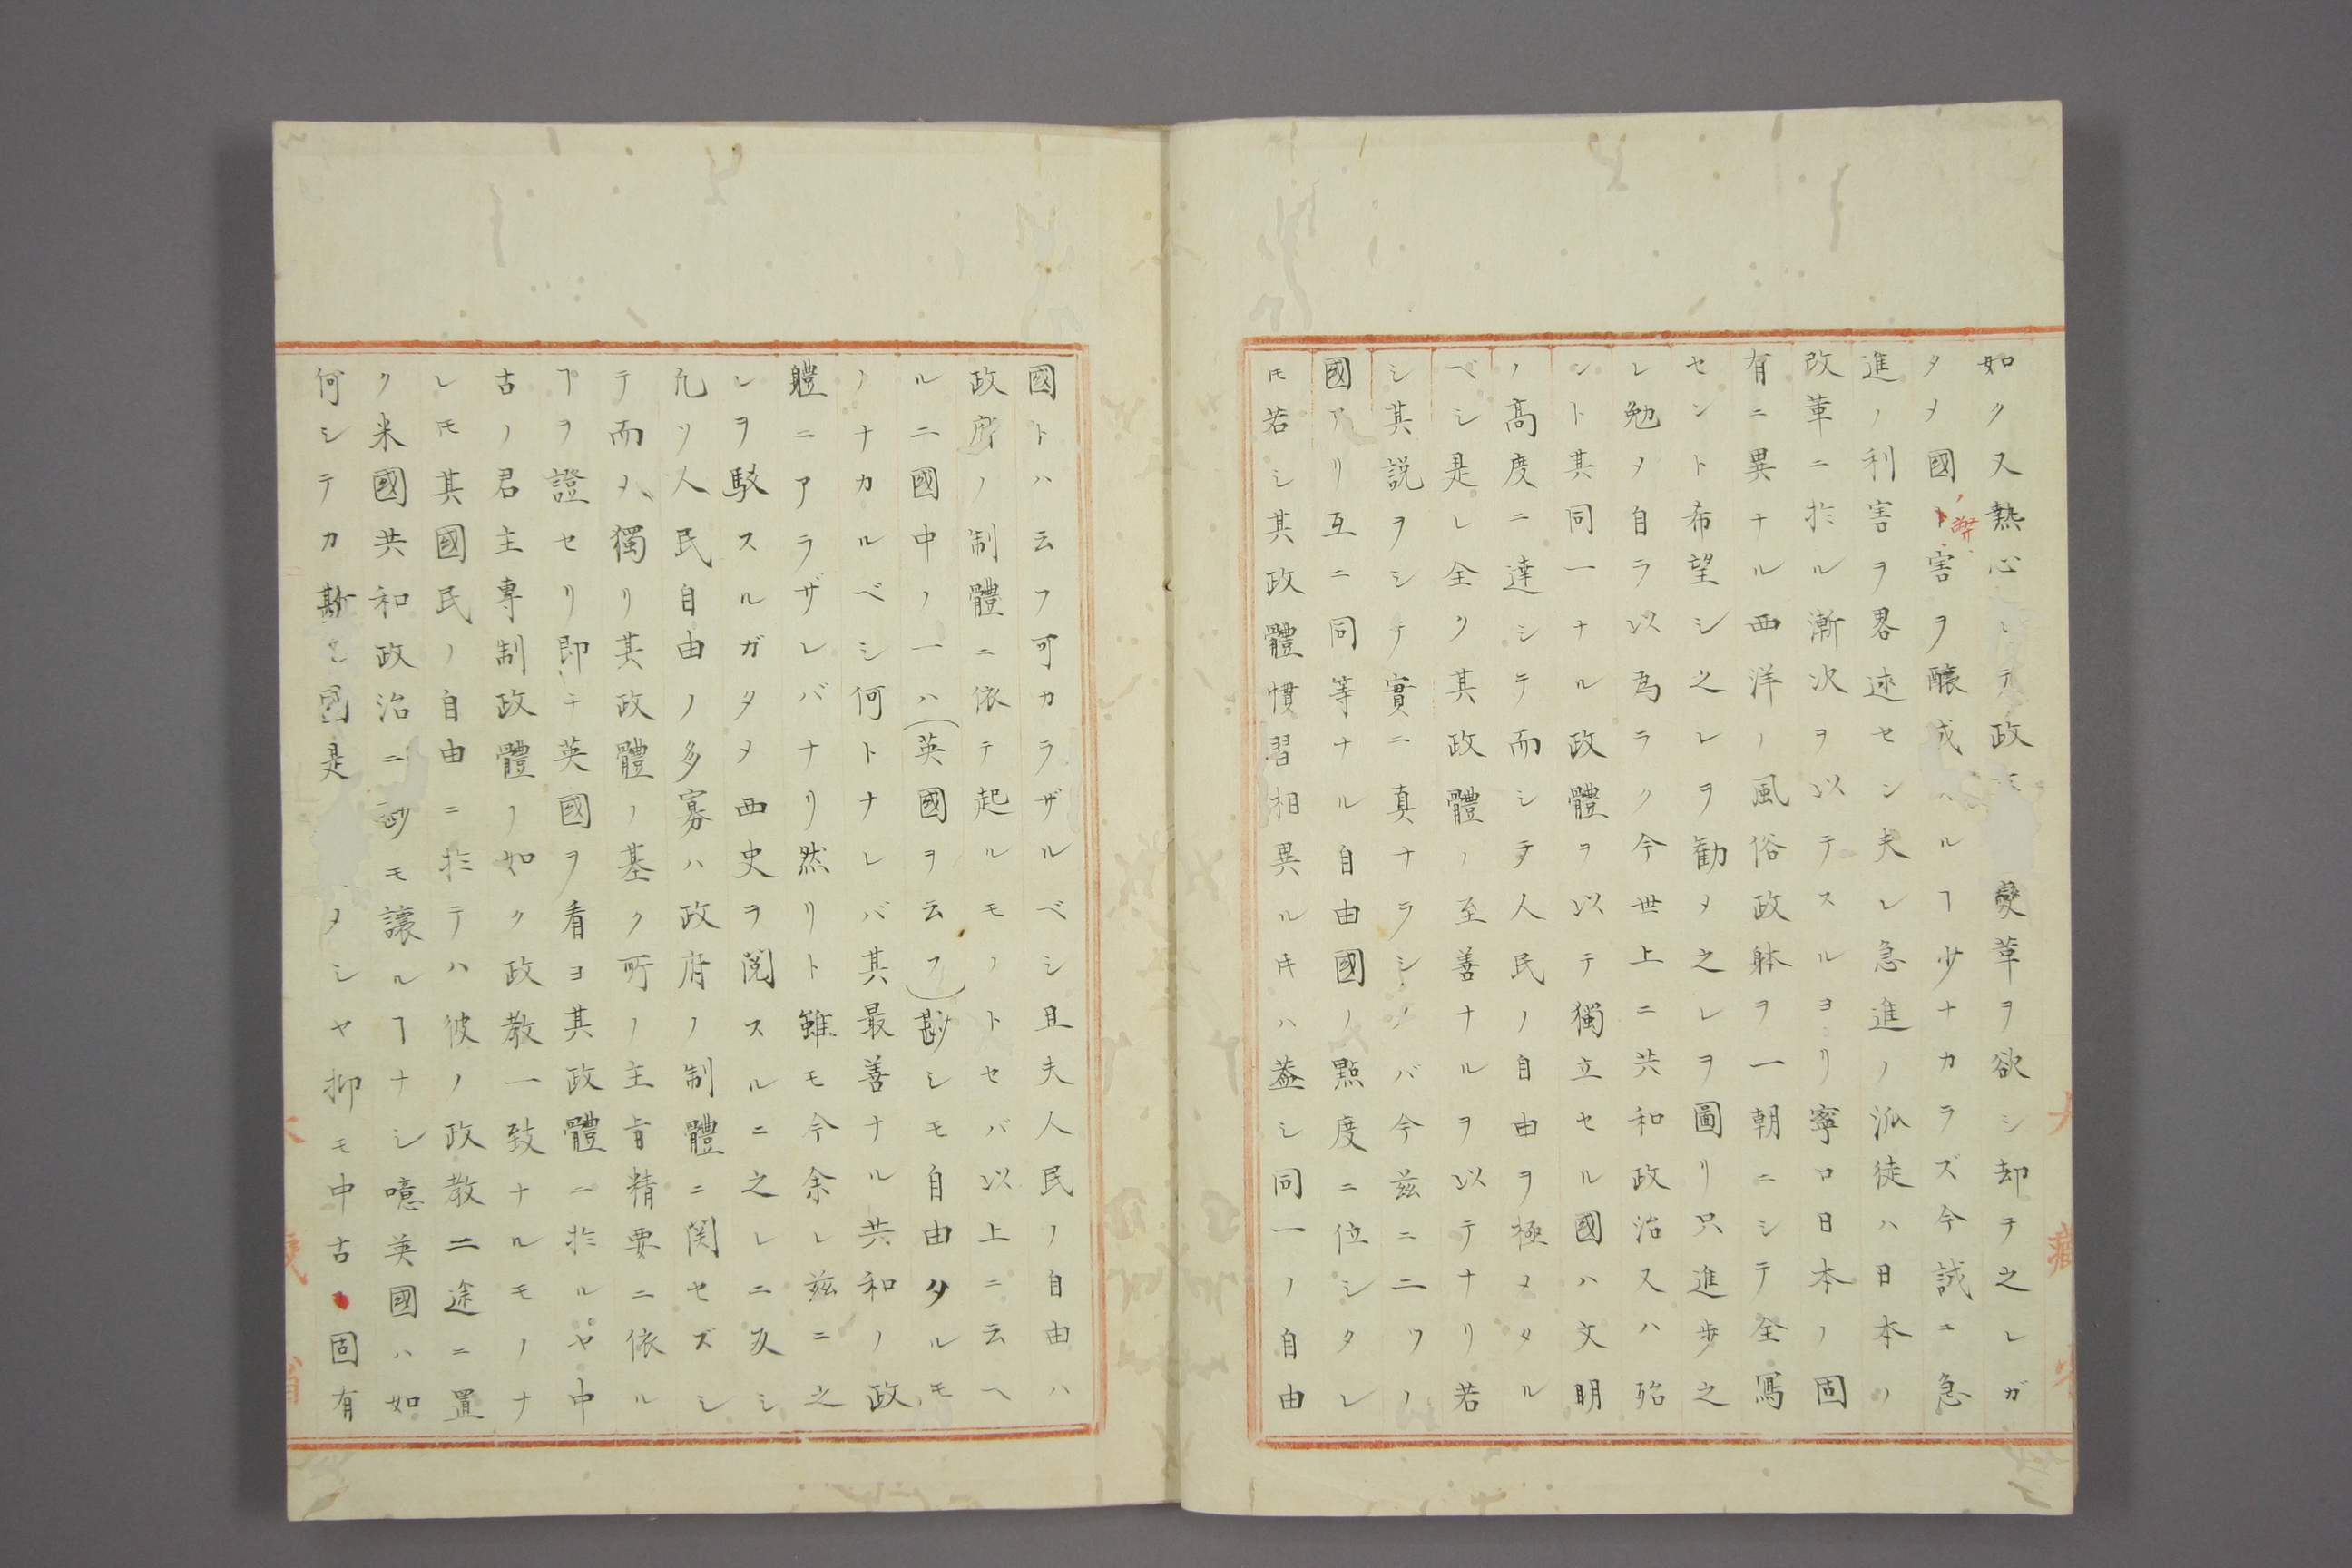 如ク又熱心シテ政　　變革ヲ欲シ却テ之レガ
タメ國弊害ヲ醸成ヘルヿ少ナカラズ今試ニ急
進ノ利害ヲ畧述セン夫レ急進ノ派徒ハ日本ノ
改革ニ於ル漸次ヲ以テスルヨリ寧ロ日本ノ固
有ニ異ナル西洋ノ風俗政躰ヲ一朝ニシテ全寫
セント希望シ之レヲ勧メ之レヲ圖リ只進歩之
レ勉メ自ラ以為ラク今世上ニ共和政治又ハ殆
ント其同一ナル政體ヲ以テ獨立セル國ハ文明
ノ高度ニ達シテ而シテ人民ノ自由ヲ極メタル
ベシ是レ全ク其政體ノ至善ナルヲ以テナリ若
シ其説ヲシテ實ニ真ナラシメバ今茲ニ二ツノ
國アリ互ニ同等ナル自由國ノ點度ニ位シタレ
圧若シ其政體慣習相異ルキハ蓋シ同一ノ自由
國トハ云フ可カラザルベシ且夫人民ノ自由ハ
政府ノ制體ニ依テ起ルモノトセバ以上ニ云ヘ
ル二國中ノ一ハ(英國ヲ云フ)尠シモ自由タルモ
ノナカルベシ何トナレバ其最善ナル共和ノ政
軆ニアラザレバナリ然リト雖モ今余レ茲ニ之
レヲ駁スルガタメ西史ヲ閲スルニ之レニ反シ
凡ソ人民自由ノ多寡ハ政府ノ制體ニ関セズシ
テ而メ獨リ其政體ノ基ク所ノ主旨精要ニ依ル
ヿヲ證セリ即チ英國ヲ看ヨ其政體ニ於ルヤ中
古ノ君主專制政體ノ如ク政教一致ナルモノナ
レ圧其國民ノ自由ニ於テハ彼ノ政教二途ニ置
ク米國共和政治ニ尠モ譲ルヿナシ噫英國ハ如
何シテカ斯　　是　　メシヤ抑モ中古固有